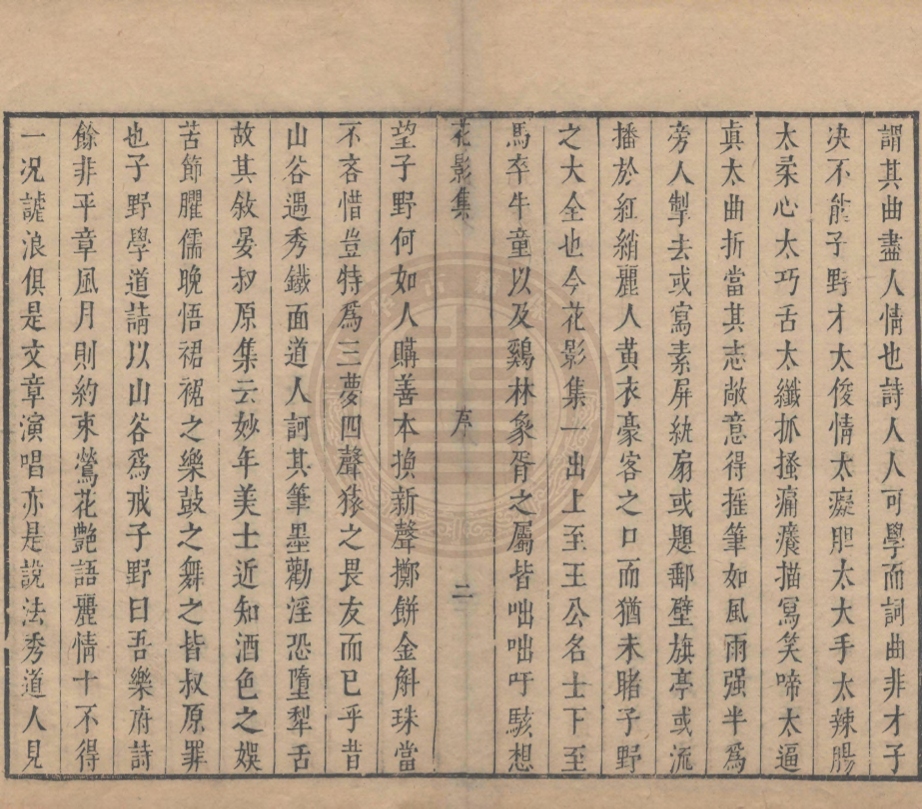 謂其曲盡人情也詩人人可學而詞曲非才子
决不能子野才太俊情太癡胆太大手太辣腸
太柔心太巧舌太纖抓搔痛癢描寫笑啼太逼
眞太曲折當其志敞意得摇筆如風雨强半爲
旁人掣去或寫素屏紈扇或題郵壁旗亭或流
播於紅綃麗人黃衣豪客之口而猶未睹子野
之大全也今花影集一出上至王公名士下至
馬卒牛童以及鷄林象胥之屬皆咄咄吁駭想
花影集 序 二
望子野何如人購善本換新聲擲餅金斛珠當
不吝惜豈特爲三夢四聲猿之畏友而已乎昔
山谷遇秀鐵面道人訶其筆墨勸淫恐墮犁舌
故其敘晏叔原集云妙年美士近知酒色之娛
苦節臞儒晚悟裙裾之樂鼓之舞之皆叔原罪
也子野學道請以山谷爲戒子野曰吾樂府詩
餘非平章風月則約束鶯花艷語麗情十不得
一况謔浪俱是文章演唱亦是說法秀道人見